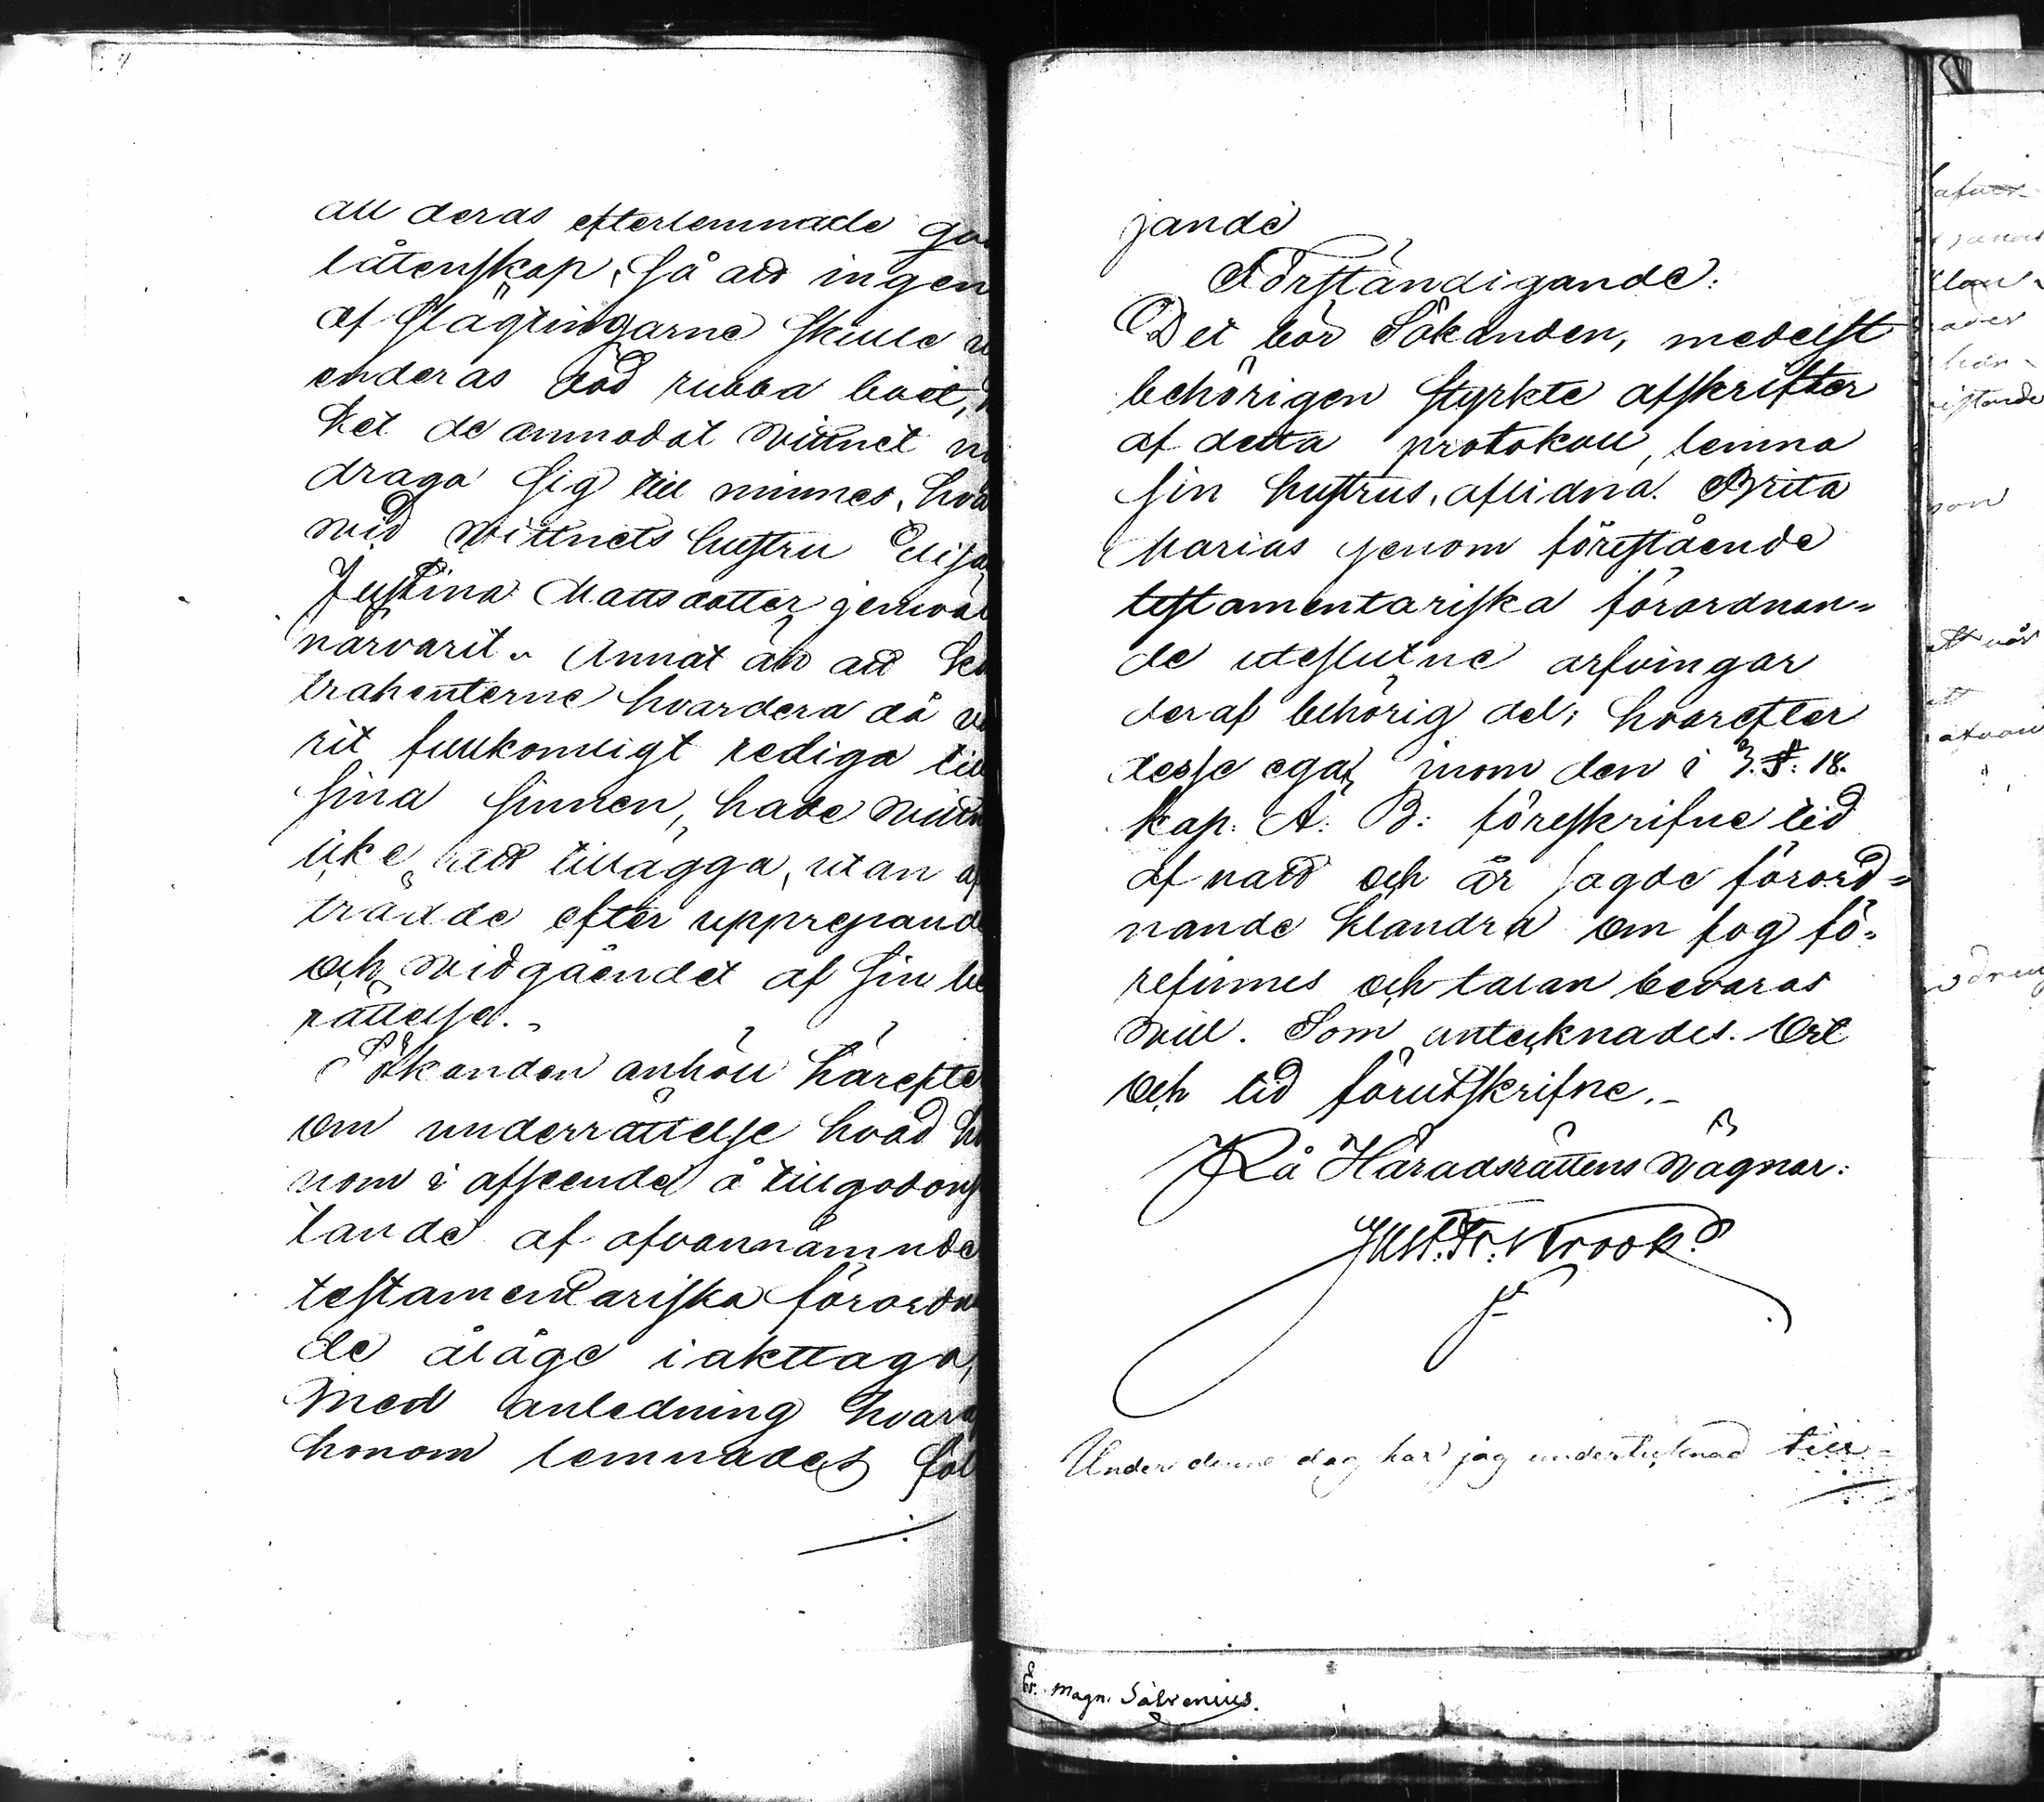 all deras efterlemnade
låtenskap, så att ingen
af slägtingarne skulle
enderas död rubba boet,
ket de anmodat Wittnet
draga sig till minnes, hva
wid Wittnets hustru Elisa
Justina Mattsdotter jemväl
närvarit. Annat än att ko
trahenterne hvardera då va
rit fullkomligt rediga till
sina sinnen, hade Wittn
icke att tillägga, utan af
trädde efter upprepande
och widgåendet af sin be
rättelse.
Sökanden anhöll härefter
om underrättelse hvad ho
nom i afseende å tillgodonj
tande af ofvannämnde
testamentariska förordn
de ålåge iakttaga,
med anledning hvaraf
honom lemnades föl
jande
Förständigande:
Det bör Sökanden, medelst
behörigen styrkte afskrifter
af detta protokoll, lemna
sin hustrus, aflidna Brita
Marias genom förestående
testamentariska förordnan=
de uteslutne arfvingar
deraf behörig del; hvarefter
desse ega inom den i 3. §: 18.
Kap: Ä: B: föreskrifne tid
af natt och år sagde förord=
nande klandra om fog fö=
refinnes och talan bevaras
will. Som antecknades. Ort
och tid förutskrifne.
På Häradsrättens Wägnar:
Just. Fr. Krook
Under denne dag har jag undertecknad till=
Er. Magn. Salvenius.